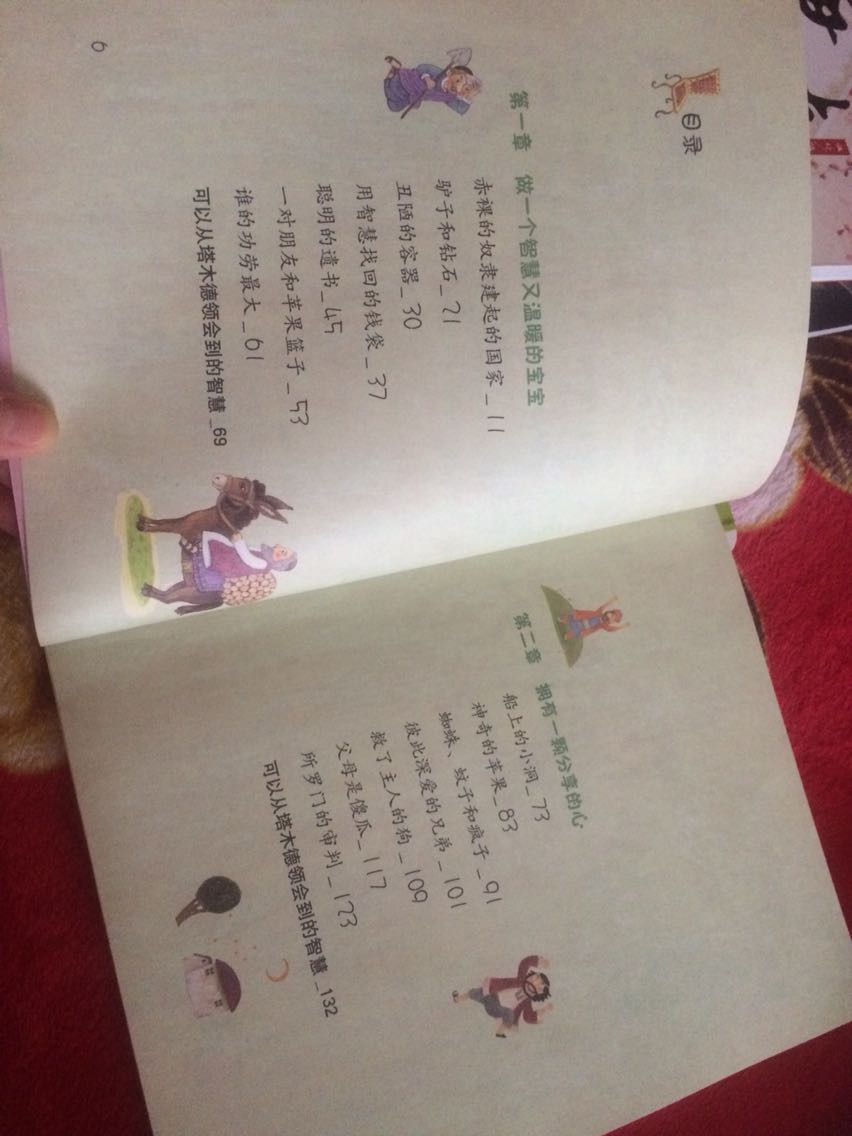 目录
第一章 做一个智慧又温暖的宝宝
赤裸的奴隶建起的国家_11
驴子和钻石_21
丑陋的容器_30
用智慧找回的钱袋_37
聪明的遗书_45
一对朋友和苹果篮子_53
谁的功劳最大_61
可以从塔木德领会到的智慧_69
6
第二章 拥有一颗分享的心
船上的小洞_73
神奇的苹果_83
蜘蛛、蚊子和疯子_91
彼此深爱的兄弟_101
救了主人的狗_109
父母是傻瓜_117
所罗门的审判_123
可以从塔木德领会到的智慧_132